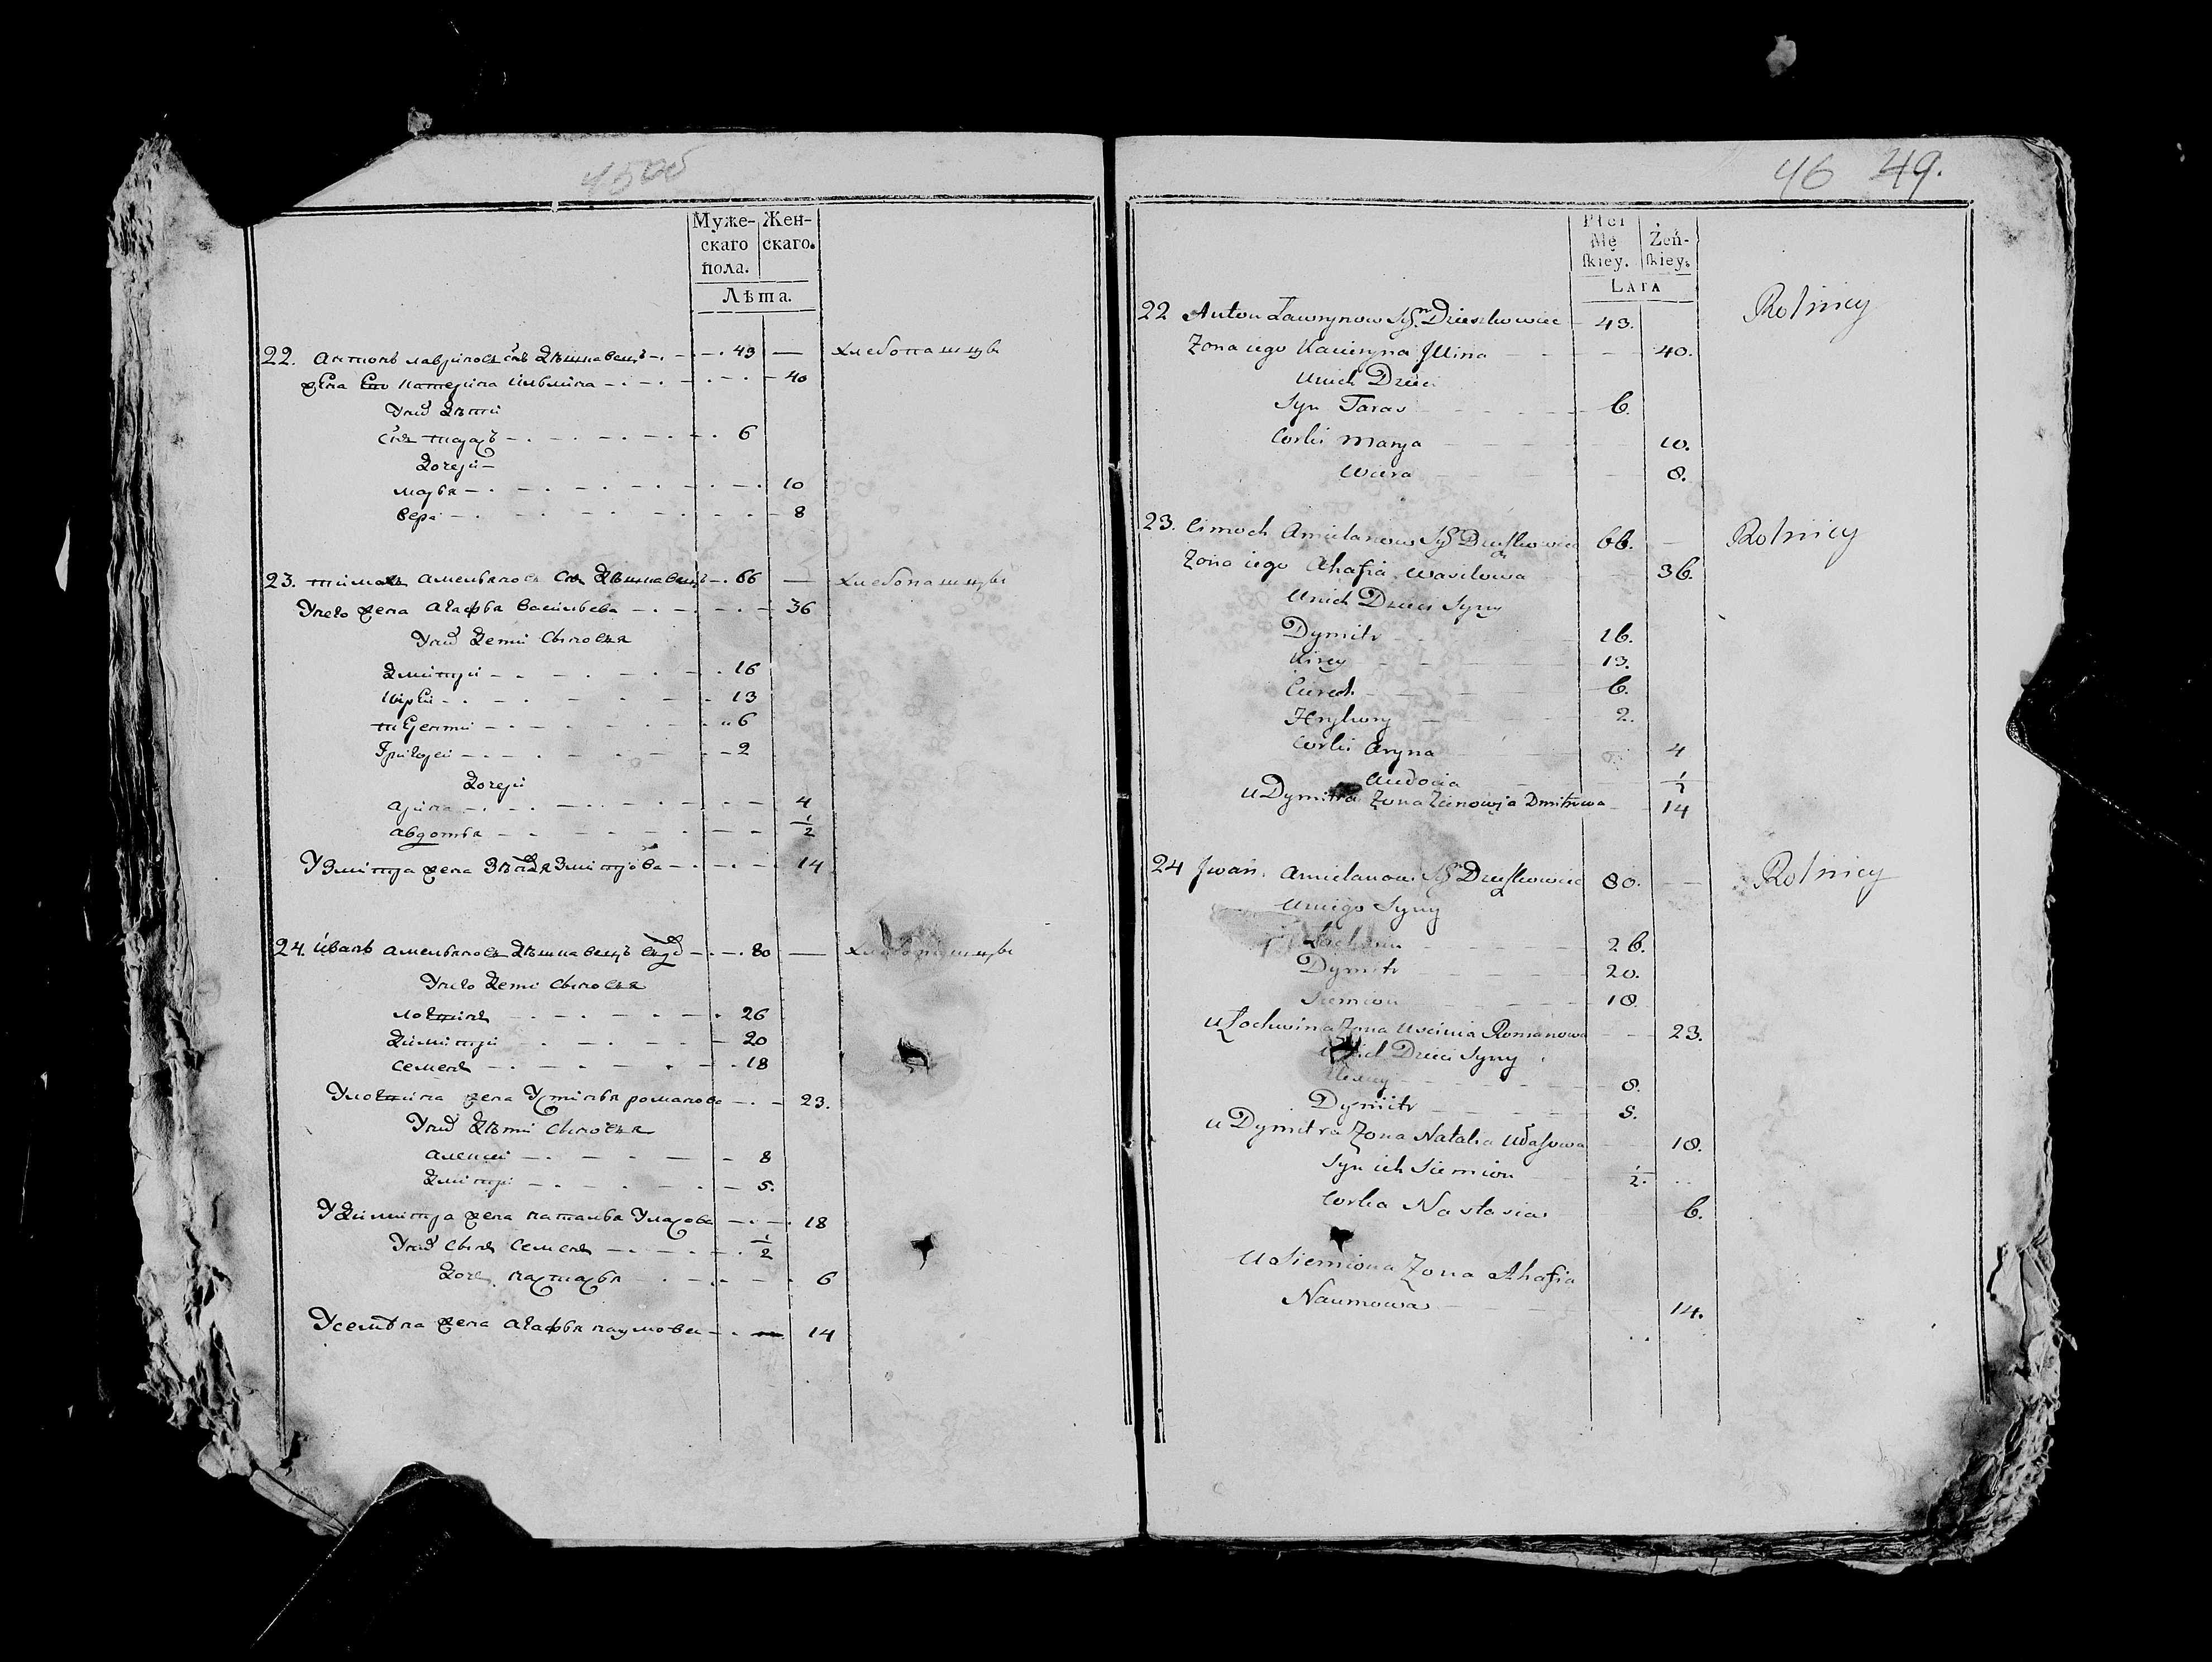 45об
Муже-скаго пола. Жен-скаго.
Лѣта.
22. антонъ лавриновъ снъ Дѣшкавецъ 43 — хлебопашцы
жена Его катерина ильина 40
Уних Дѣти
снъ тарасъ 6
Дочери
марья 10
вера 8
23. тимохъ амельяновъ снъ Дѣшкавецъ 66 — хлебопашцы
Унего жена агафья васильева 36
Уних Дети сыновья
Дмитри 16
кирей 13
терентий 6
Григорей 2
Дочери
арина 4
авдотья 1/2
У Змитра жена Змитрова 14
24. иванъ амельяновъ Дѣшкавецъ 80 — хлебопашцы
Унего Дети сыновья
26
Димитри 20
семенъ 18
жена Устинья романова 23.
Уних Дѣти сыновья
алексей 8
Дмитри 5.
У Димитра жена наталья Уласова 18
Уних сынъ семенъ 1/2
Дочь настасья 6
Усемѣна жена агафья наумова 14
46 49.
Płci Mę skiey. Żeń-skiey.
LATA
22 Anton Ławrynow Syn Dzieszkowiec 43. Rolnicy
Zona iego Kacieryna Jllina 40.
Unich Dzieci
Syn Taras 6.
Corki Marya 10.
Wiera 8.
23. Cimoch Amielanow Syn 66. — Rolnicy
Zona iego Ahafia Wasilowa 36.
Unich Dzieci Syny
Dymitr 16.
Kirey 13.
6.
Hryhory 2.
Corki Aryna 4
Audocia 1/2
U Dymitra Zona Zienowja Dmitrowa 14
24 Jwan Amielanow Syn 80. — Rolnicy
Uniego Syny
26.
Dymitr 20.
Siemion 18.
U Łochwina Zona Uscinia Romanowa 23.
Unich Dzieci Syny
8.
Dymitr 5.
U Dymitra Zona Natalia Ułasowa 18.
Syn ich Siemion 1/2.
Corka Nastasia 6.
U Siemiona Zona Ahafia
Naumowa 14.